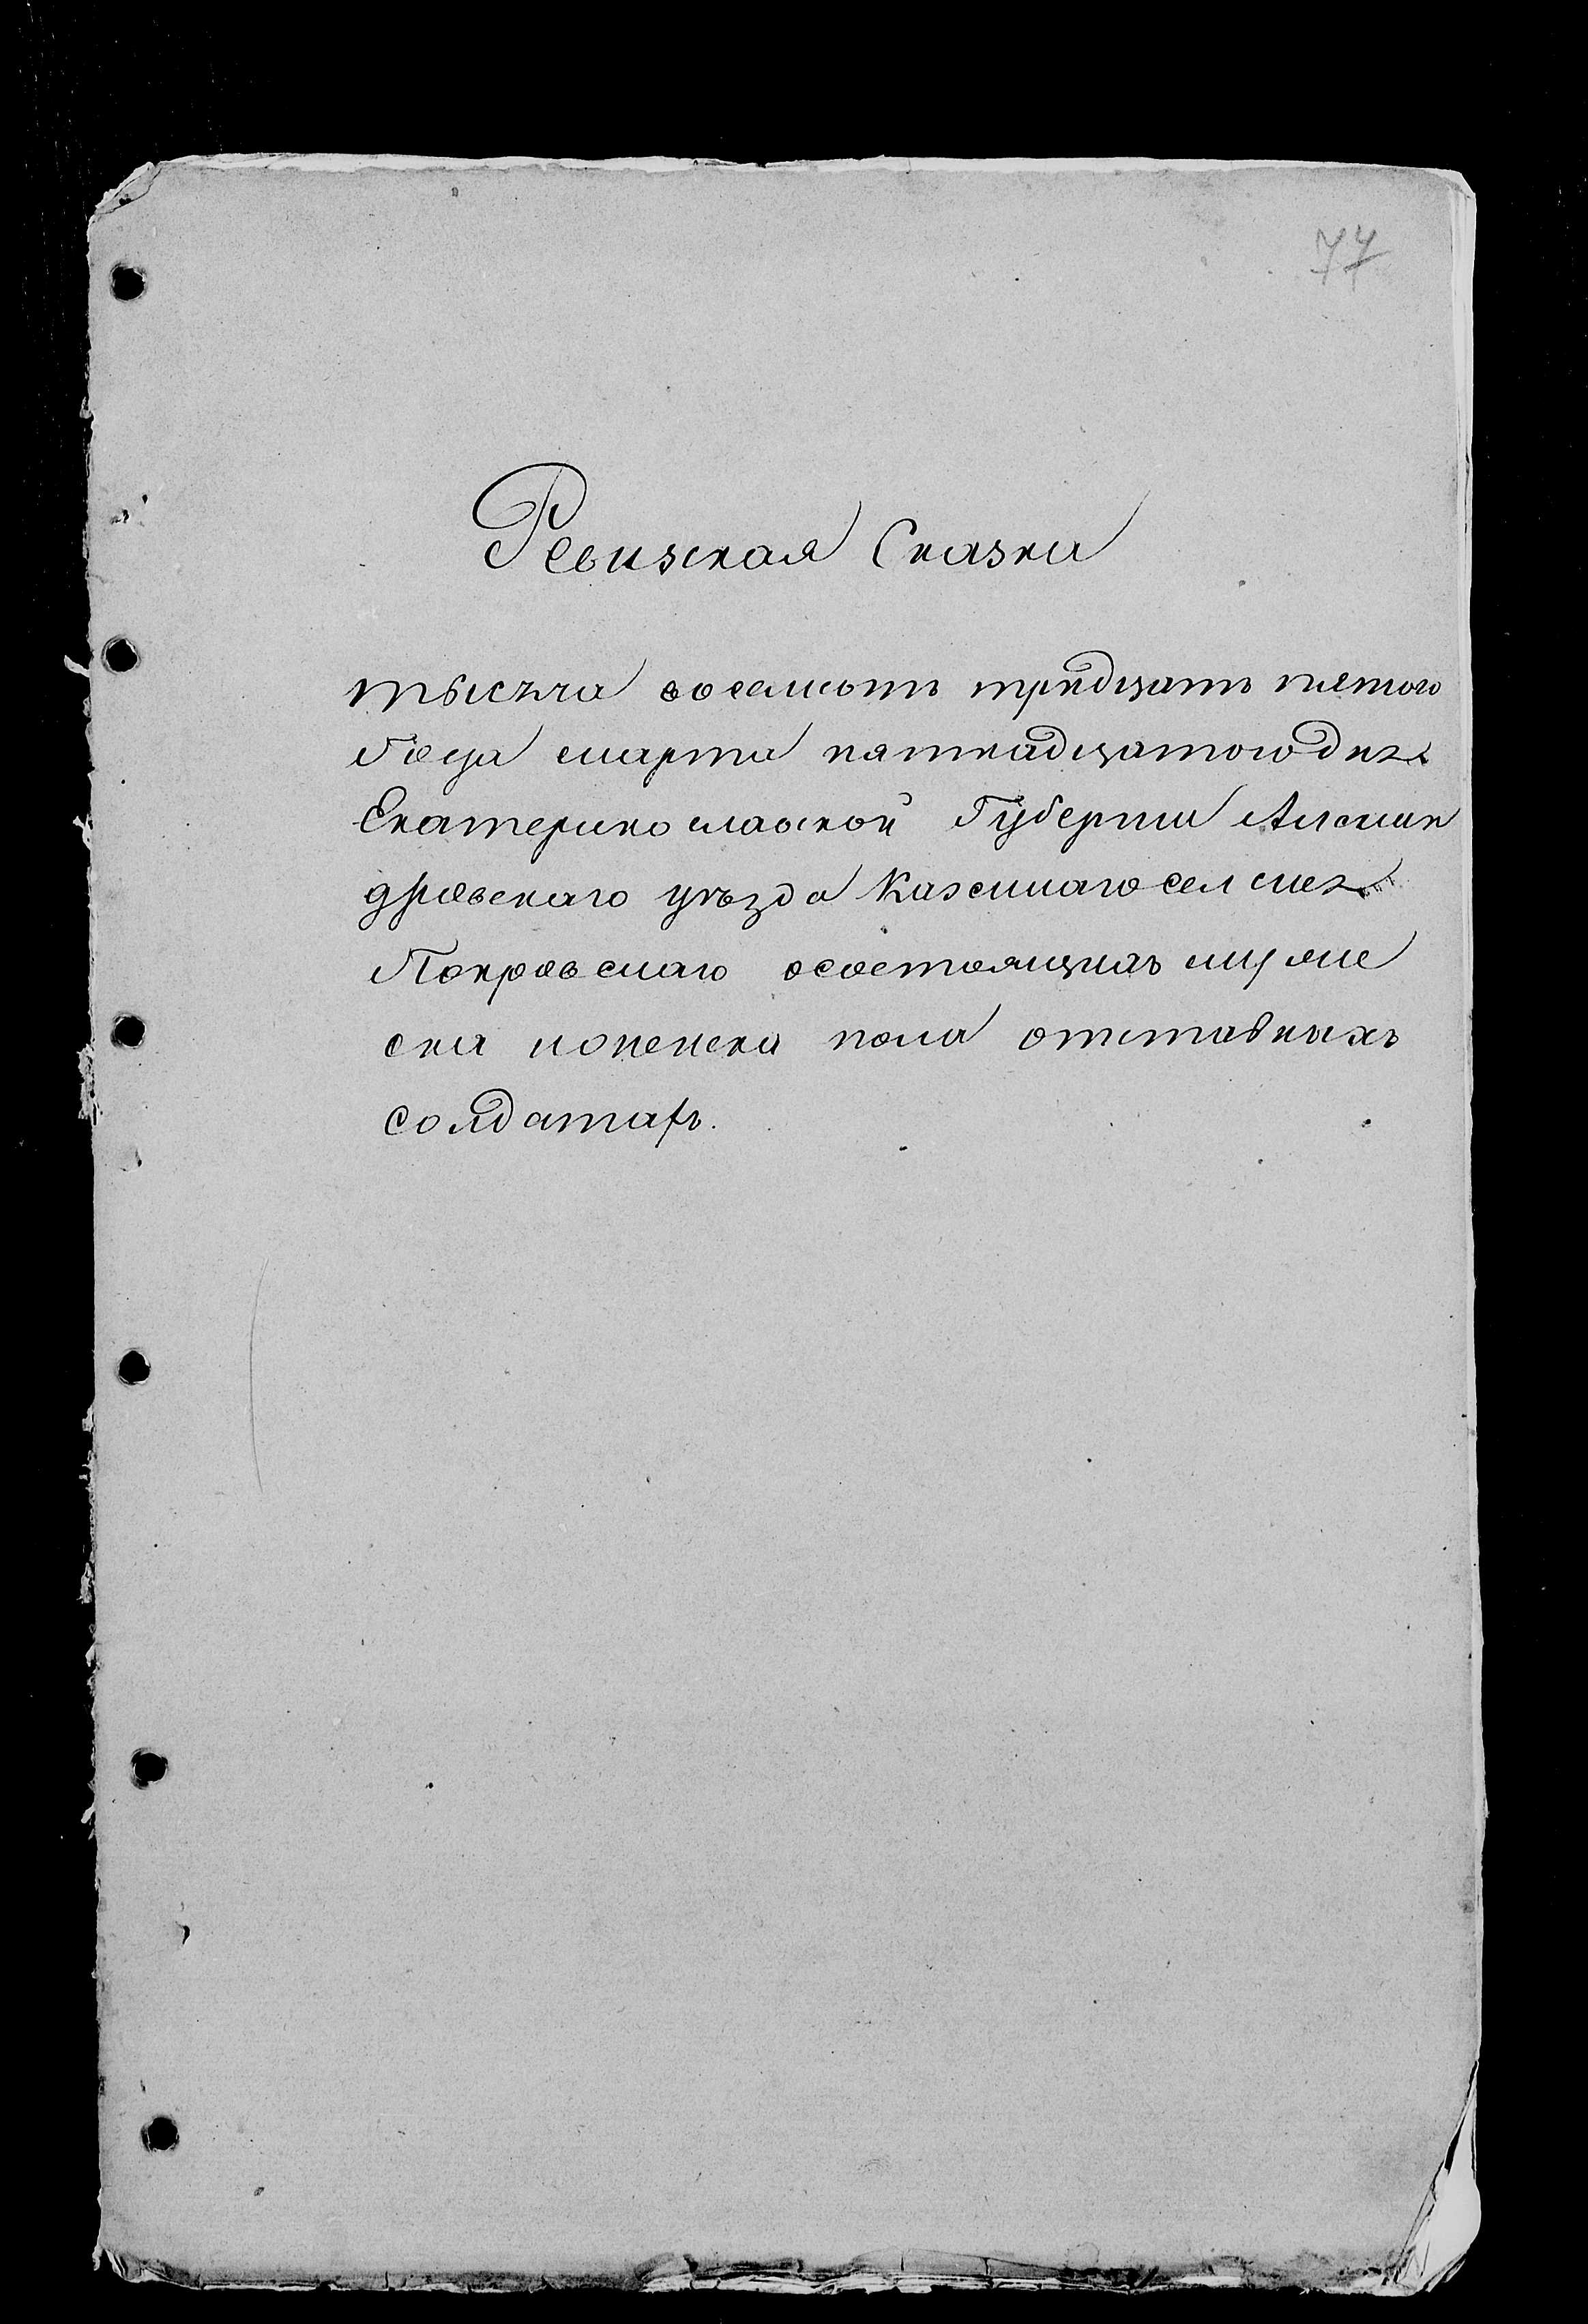 77
Ревизская Сказка
тысяча восемьсотъ тридцать пятого
Года марта пятнадцатого дня
Екатеринославской Губернии Алексан
дровскаго уѣзда Казеннаго селения
Покровскаго осостоящихъ мужие
ска иоженска пола отставныхъ
солдатахъ.